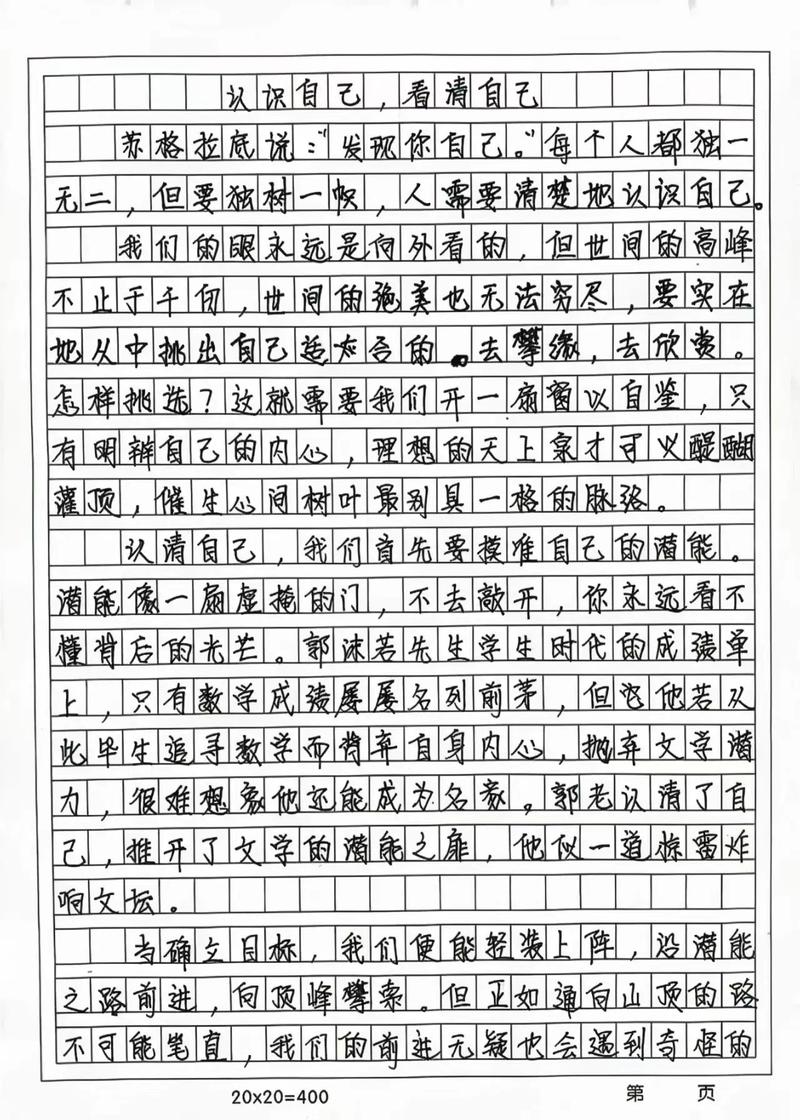 认识自己，看清自己
苏格拉底说："发现你自己。"每个人都独一
无二，但要独树一帜，人需要清楚地认识自己。
我们的眼永远是向外看的，但世间的高峰
不止于千仞，世间的绝美也无法穷尽，要实在
地从中挑出自己适合的。去攀缘，去欣赏。
怎样挑选？这就需要我们开一扇窗以自鉴，只
有明辨自己的内心，理想的天上泉才可以醍醐
灌顶，催生心间树叶最别具一格的脉络。
认清自己，我们首先要摸准自己的潜能。
潜能像一扇虚掩的门，不去敲开，你永远看不
懂背后的光芒。郭沫若先生学生时代的成绩单
上，只有数学成绩屡屡名列前茅，但他若从
此毕生追寻数学而背弃自身内心，抛弃文学潜
力，很难想象他还能成为名家。郭老认清了自
己，推开了文学的潜能之扉，他似一道惊雷炸
响文坛。
当确立目标，我们便能轻装上阵，沿潜能
之路前进，向顶峰攀索。但正如通向山顶的路
不可能笔直，我们的前进无疑也会遇到奇怪的
20×20=400
第 页